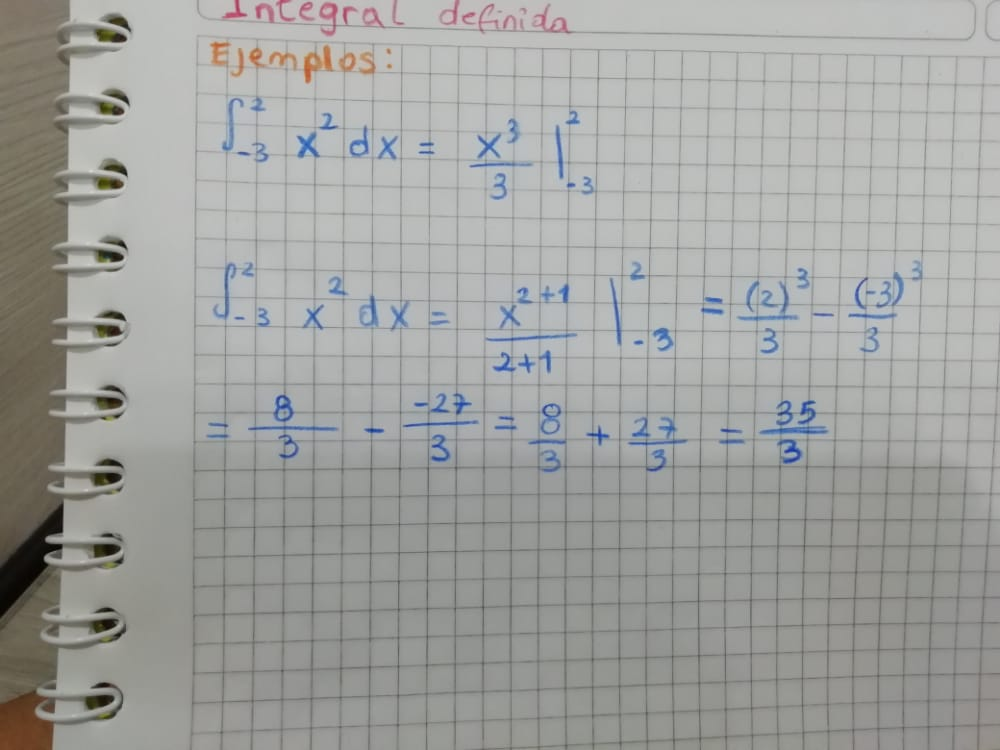 Integral definida
Ejemplos:
∫₋₃² x² dx = x³/3 |₋₃²
∫₋₃² x² dx = x²⁺¹/2+1 |₋₃² = (2)³/3 - (-3)³/3
= 8/3 - -27/3 = 8/3 + 27/3 = 35/3